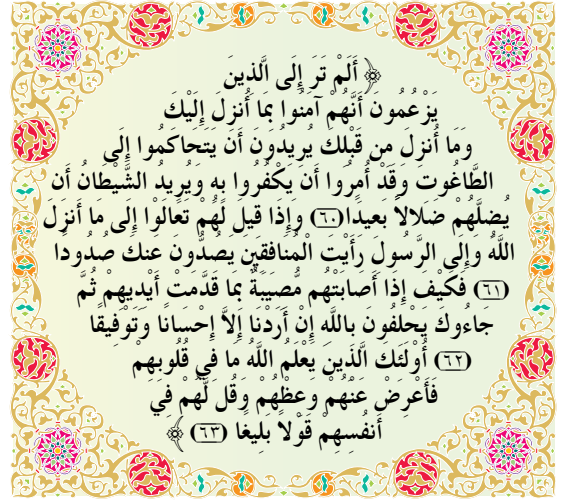 ﴿ أَلَمْ تَرَ إِلَى الَّذِينَ
يَزْعُمُونَ أَنَّهُمْ آمَنُوا بِمَا أُنزِلَ إِلَيْكَ
وَمَا أُنزِلَ مِن قَبْلِكَ يُرِيدُونَ أَن يَتَحَاكَمُوا إِلَى
الطَّاغُوتِ وَقَدْ أُمِرُوا أَن يَكْفُرُوا بِهِ وَيُرِيدُ الشَّيْطَانُ أَن
يُضِلَّهُمْ ضَلالاً بَعِيدًا(٦٠) وَإِذَا قِيلَ لَهُمْ تَعَالَوْا إِلَى مَا أَنزَلَ
اللَّهُ وَإِلَى الرَّسُولِ رَأَيْتَ الْمُنَافِقِينَ يَصُدُّونَ عَنكَ صُدُودًا
(٦١) فَكَيْفَ إِذَا أَصَابَتْهُم مُّصِيبَةٌ بِمَا قَدَّمَتْ أَيْدِيهِمْ ثُمَّ
جَاءُوكَ يَحْلِفُونَ بِاللَّهِ إِنْ أَرَدْنَا إِلاَّ إِحْسَانًا وَتَوْفِيقًا
(٦٢) أُوْلَئِكَ الَّذِينَ يَعْلَمُ اللَّهُ مَا فِي قُلُوبِهِمْ
فَأَعْرِضْ عَنْهُمْ وَعِظْهُمْ وَقُل لَّهُمْ فِي
أَنفُسِهِمْ قَوْلاً بَلِيغًا (٦٣) ﴾